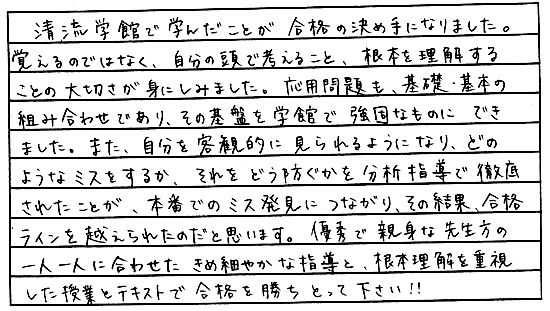 清流学館で学んだことが合格の決め手になりました。
覚えるのではなく、自分の頭で考えること、根本を理解する
ことの大切さが身にしみました。応用問題も、基礎・基本の
組み合わせであり、その基盤を学館で強固なものにでき
ました。また、自分を客観的に見られるようになり、どの
ようなミスをするか、それをどう防ぐかを分析指導で徹底
されたことが、本番でのミス発見につながり、その結果、合格
ラインを越えられたのだと思います。優秀で親身な先生方の
一人一人に合わせたきめ細やかな指導と、根本理解を重視
した授業とテキストで合格を勝ちとって下さい!!